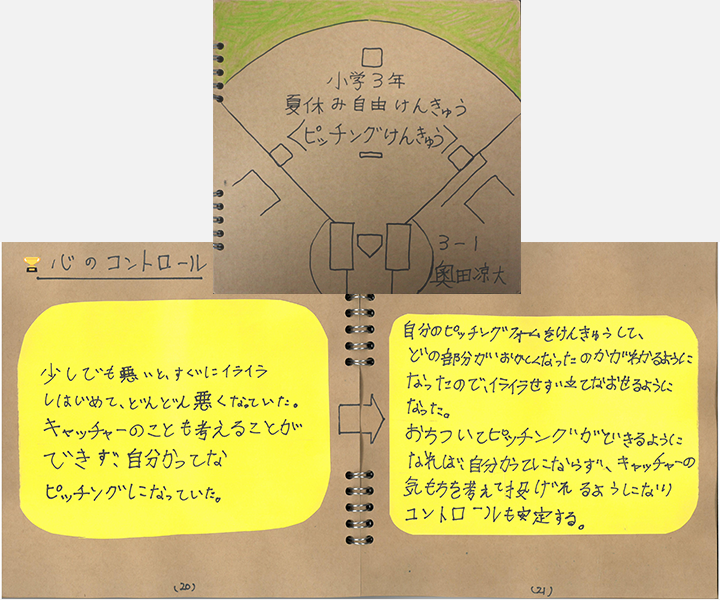 小学3年
夏休み自由けんきゅう
<ピッチングけんきゅう>
3-1
奥田涼大
心のコントロール
少しでも悪いと、すぐにイライラ
しはじめて、どんどん悪くなっていた。
キャッチャーのことも考えることが
できず、自分かってな
ピッチングになっていた。
(20)
自分のピッチングフォームをけんきゅうして、
どの部分がおかしくなったのかがわかるように
なったので、イライラせず立てなおせるように
なった。
おちついてピッチングができるように
なれば自分かってにならず、キャッチャーの
気もちを考えて投げれるようになり
コントロールも安定する。
(21)